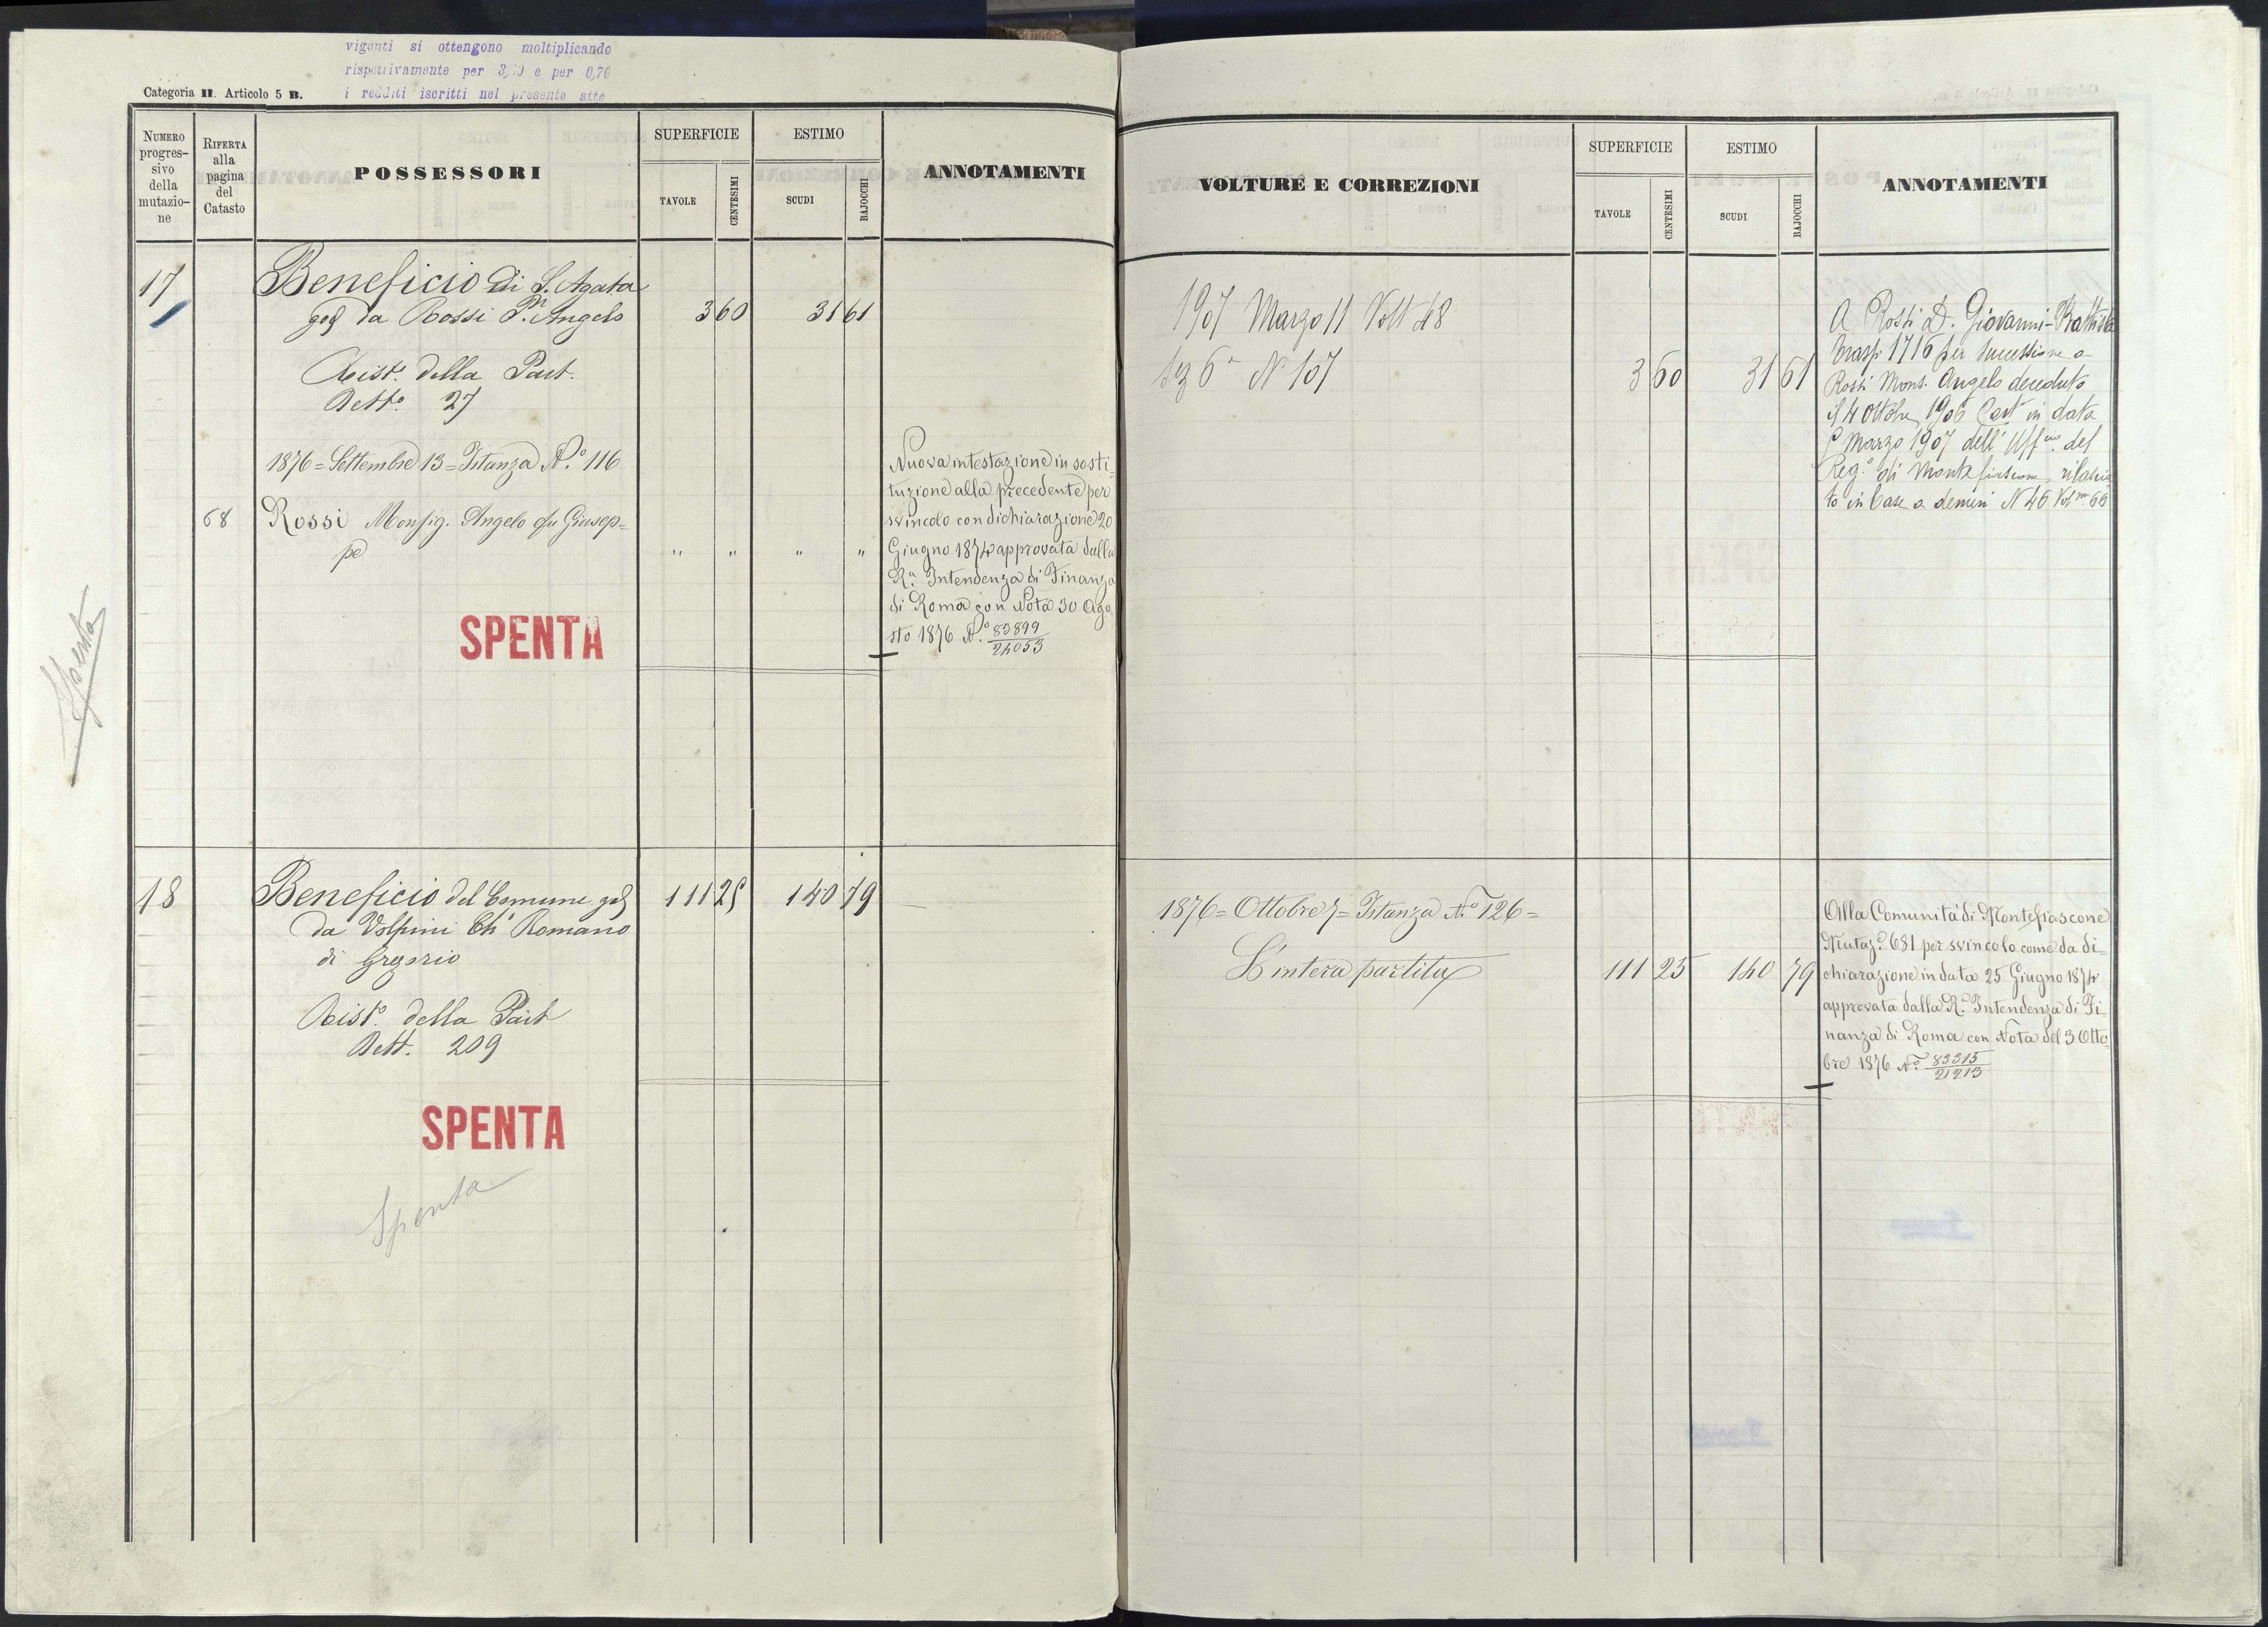 viganti si ottengono moltiplicando
rispettivamente per 3,  e per 0,70
i redditi iscritti nel presente atto
Categoria II. Articolo 5 B.
NUMERO
progres-
sivo
della
mutazio-
ne
RIFERTA
alla
pagina
del
Catasto
POSSESSORI
SUPERFICIE
TAVOLE
CENTESIMI
ESTIMO
SCUDI
BAJOCCHI
ANNOTAMENTI
17
Beneficio di S. Agata
god da Rossi D. Angelo
3 60 31 61
Rist. della Part.
Rett. 27
1876 = Settembre 13 = Istanza N.° 116
68
Rossi Monsig. Angelo fu Giusep=
pe
" " " "
Nuova intestazione in sosti=
tuzione alla precedente per
svincolo con dichiarazione 20
Giugno 1874 approvata dalla
R.a Intendenza di Finanza
di Roma con Nota 30 Ago
sto 1876 N.° 83899
24053
SPENTA
Spenta
18
Beneficio del Comune god
da Volpini Ch° Romano
di Gregorio
111 25 140 79
Rist.° della Part
Rett. 209
SPENTA
Spenta
VOLTURE E CORREZIONI
SUPERFICIE
TAVOLE
CENTESIMI
ESTIMO
SCUDI
BAJOCCHI
ANNOTAMENTI
1907 Marzo 11 Volt 48
N 107
3 60 31 61
A Rossi D. Giovanni-Battista
Trasp. 1716 per successione a
Rossi Mons. Angelo deceduto
il 4 Ottobre 1906 Cert in data
Marzo 1907 dell' Uff. del
Reg.° di Montefiascone rilascia
to in base a denun N 46 Vol 66
1876 = Ottobre 7 = Istanza N.° 126 =
L'intera partita
111 25 140 79
Alla Comunità di Montefiascone
Mutaz.e 681 per svincolo come da di=
chiarazione in data 25 Giugno 1874
approvata dalla R.a Intendenza di Fi=
nanza di Roma con Nota del 3 Otto=
bre 1876 N.° 83315
21213